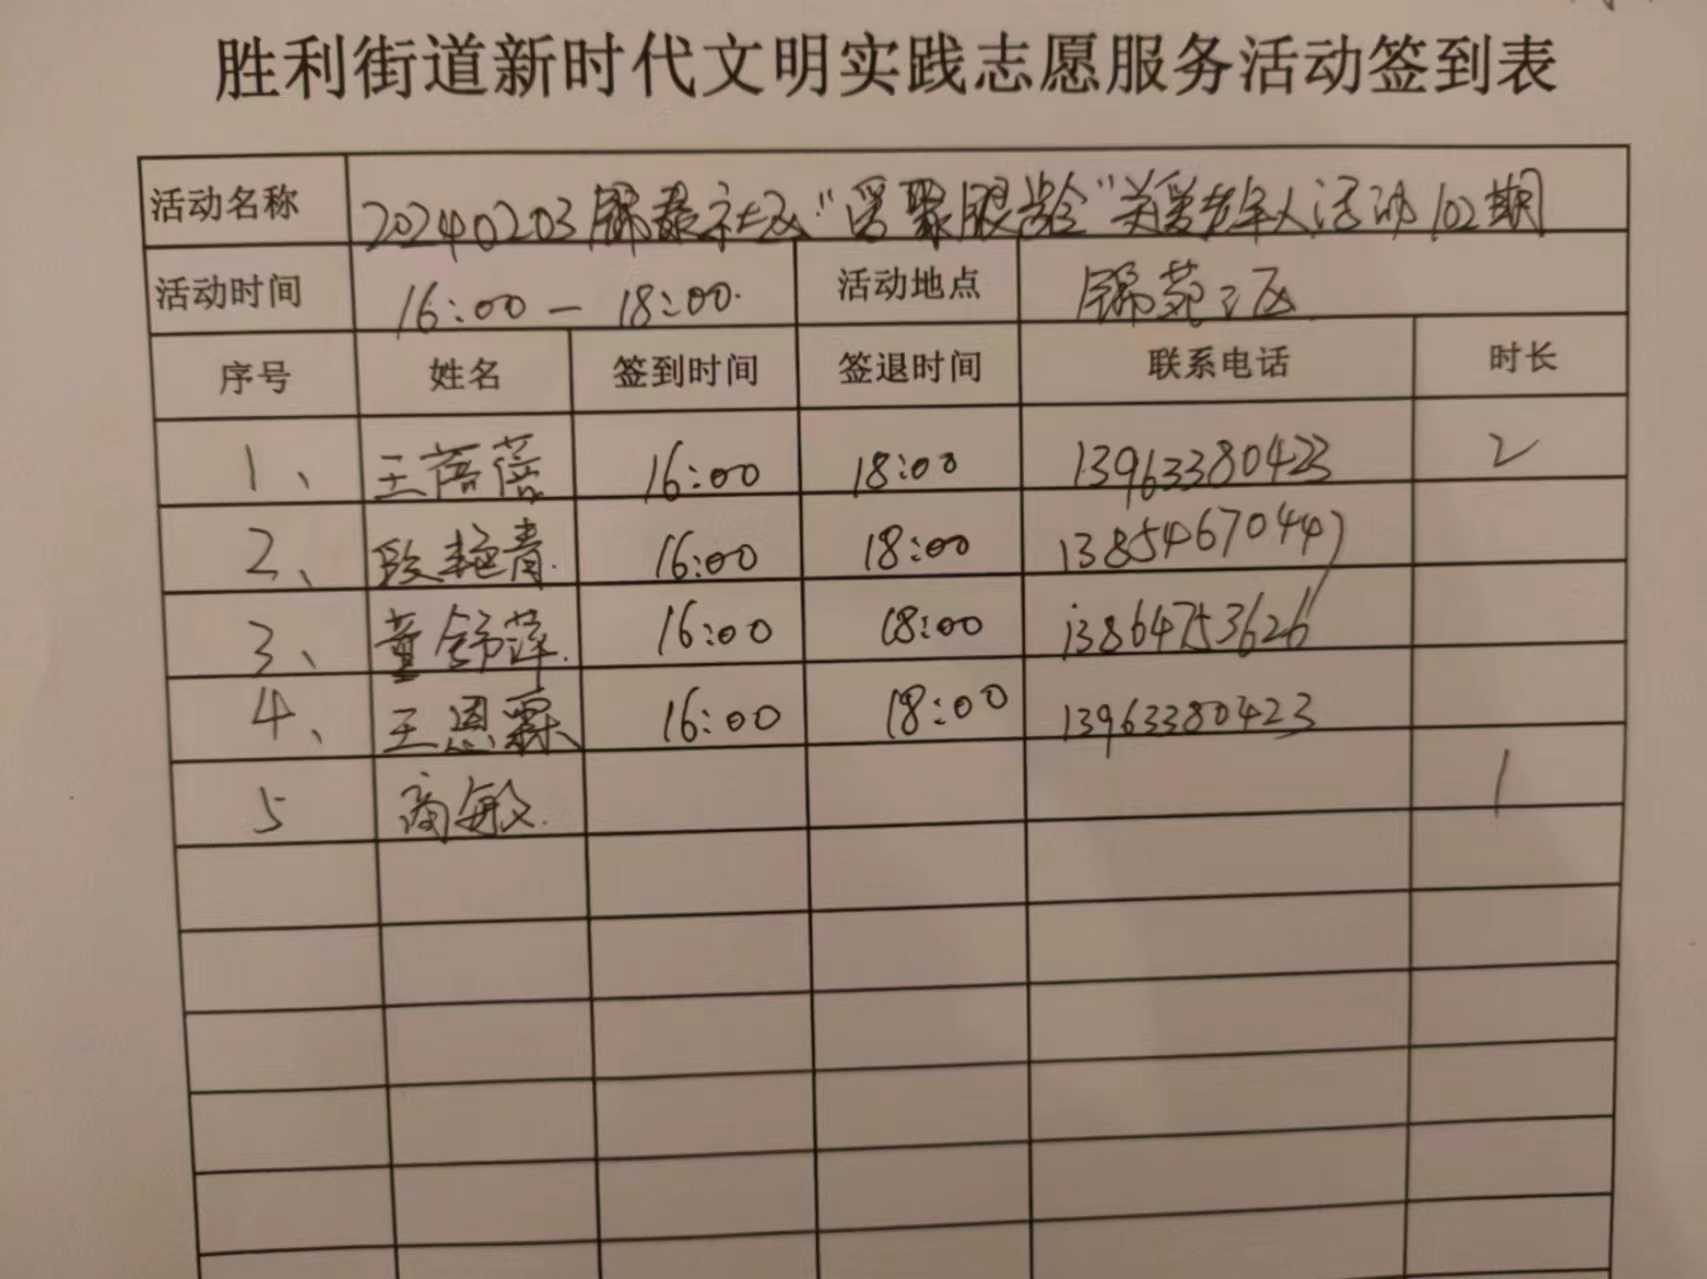 胜利街道新时代文明实践志愿服务活动签到表
活动名称 20240203锦泰社区“爱聚银龄”关爱老年人活动102期
活动时间 16:00-18:00. 活动地点 锦苑三区
序号 姓名 签到时间 签退时间 联系电话 时长
1、 王蓓蓓 16:00 18:00 13963380423 2
2、 段艳青. 16:00 18:00 13854670447
3、 董舒萍. 16:00 18:00 13864753626
4、 王恩霖 16:00 18:00 13963380423
5 商敏. 1